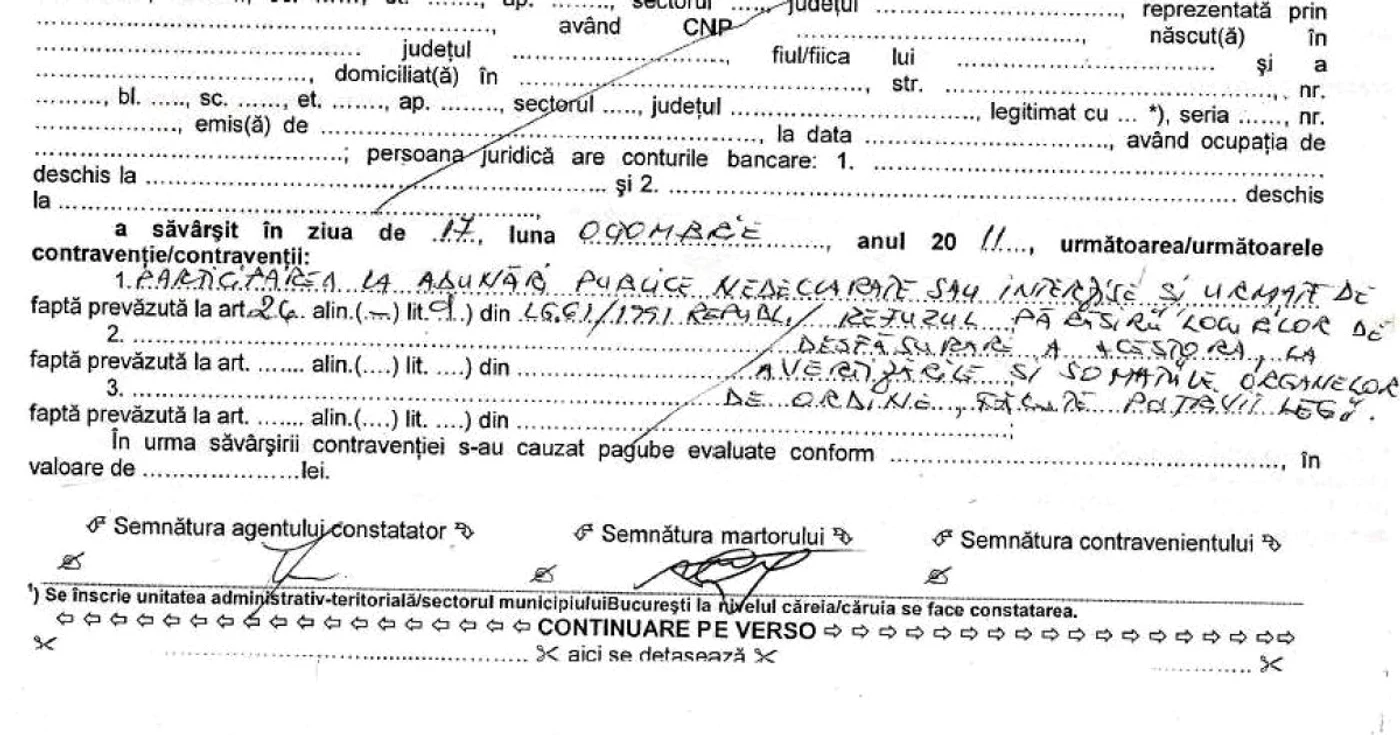 sectorul ....., județul ..............................., reprezentată prin
..........................................................., având CNP ..................................., născut(ă) în
......................................... județul .........................., fiul/fiica lui ................................ și a
.................................., domiciliat(ă) în .........................................., str. ........................................, nr.
........., bl. ....., sc. ......, et. ......., ap. ........, sectorul ....., județul ..............................., legitimat cu ... *), seria ......, nr.
.................., emis(ă) de ......................................................, la data ..............................., având ocupația de
.......................................; persoana juridică are conturile bancare: 1. ........................................................
deschis la ......................................................... și 2. ....................................................................... deschis
la ............................................................,
a săvârșit în ziua de .17., luna OCOMBRIE .........., anul 20 11...., următoarea/următoarele
contravenție/contravenții:
1. PARTICIPAREA LA ADUNĂRI PUBLICE NEDECLARATE SAU INTERZISE SI URMATE DE
faptă prevăzută la art. 26. alin.(—) lit. d.) din LG.61/1991 REPUBL./ REFUZUL PĂRĂSIRII LOCURILOR DE
2. ........................ DESFĂSURARE A ACESTORA, LA
faptă prevăzută la art. ....... alin.(....) lit. ....) din ............ AVERTIZĂRILE SI SOMATIILE ORGANELOR
3. ........................ DE ORDINE, FĂCUTE POTRIVIT LEGII.
faptă prevăzută la art. ....... alin.(....) lit. ....) din ............................................................;
În urma săvârșirii contravenției s-au cauzat pagube evaluate conform ................................................, în
valoare de ....................lei.
Semnătura agentului constatator Semnătura martorului Semnătura contravenientului
¹) Se înscrie unitatea administrativ-teritorială/sectorul municipiuluiBucurești la nivelul căreia/căruia se face constatarea.
⇦ ⇦ ⇦ ⇦ ⇦ ⇦ ⇦ ⇦ ⇦ ⇦ ⇦ ⇦ ⇦ ⇦ ⇦ ⇦ ⇦ ⇦ CONTINUARE PE VERSO ⇨ ⇨ ⇨ ⇨ ⇨ ⇨ ⇨ ⇨ ⇨ ⇨ ⇨ ⇨ ⇨ ⇨ ⇨ ⇨ ⇨ ⇨
✂ .................................................. ✂ aici se detașează ✂ .............. ✂